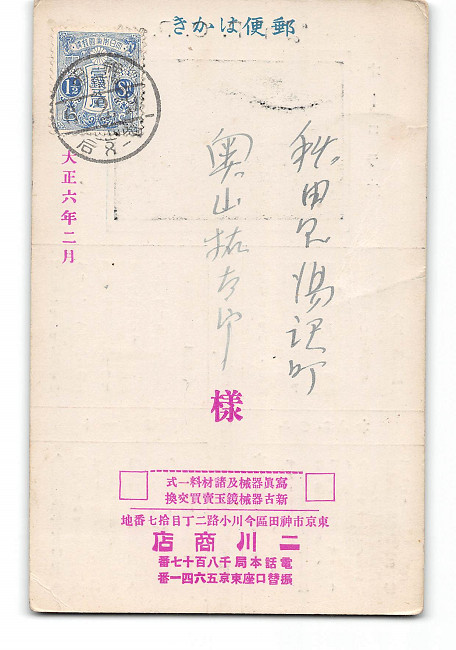 郵便はかき
1½ Sn.
秋田県湯沢町
奥山
樣
大正六年二月
寫眞器械及諸材料一式
新古器械鏡玉賣買交換
東京市神田區今川小路二丁目拾七番地
二川商店
電話本局千八百十七番
振替口座東京五六四一番